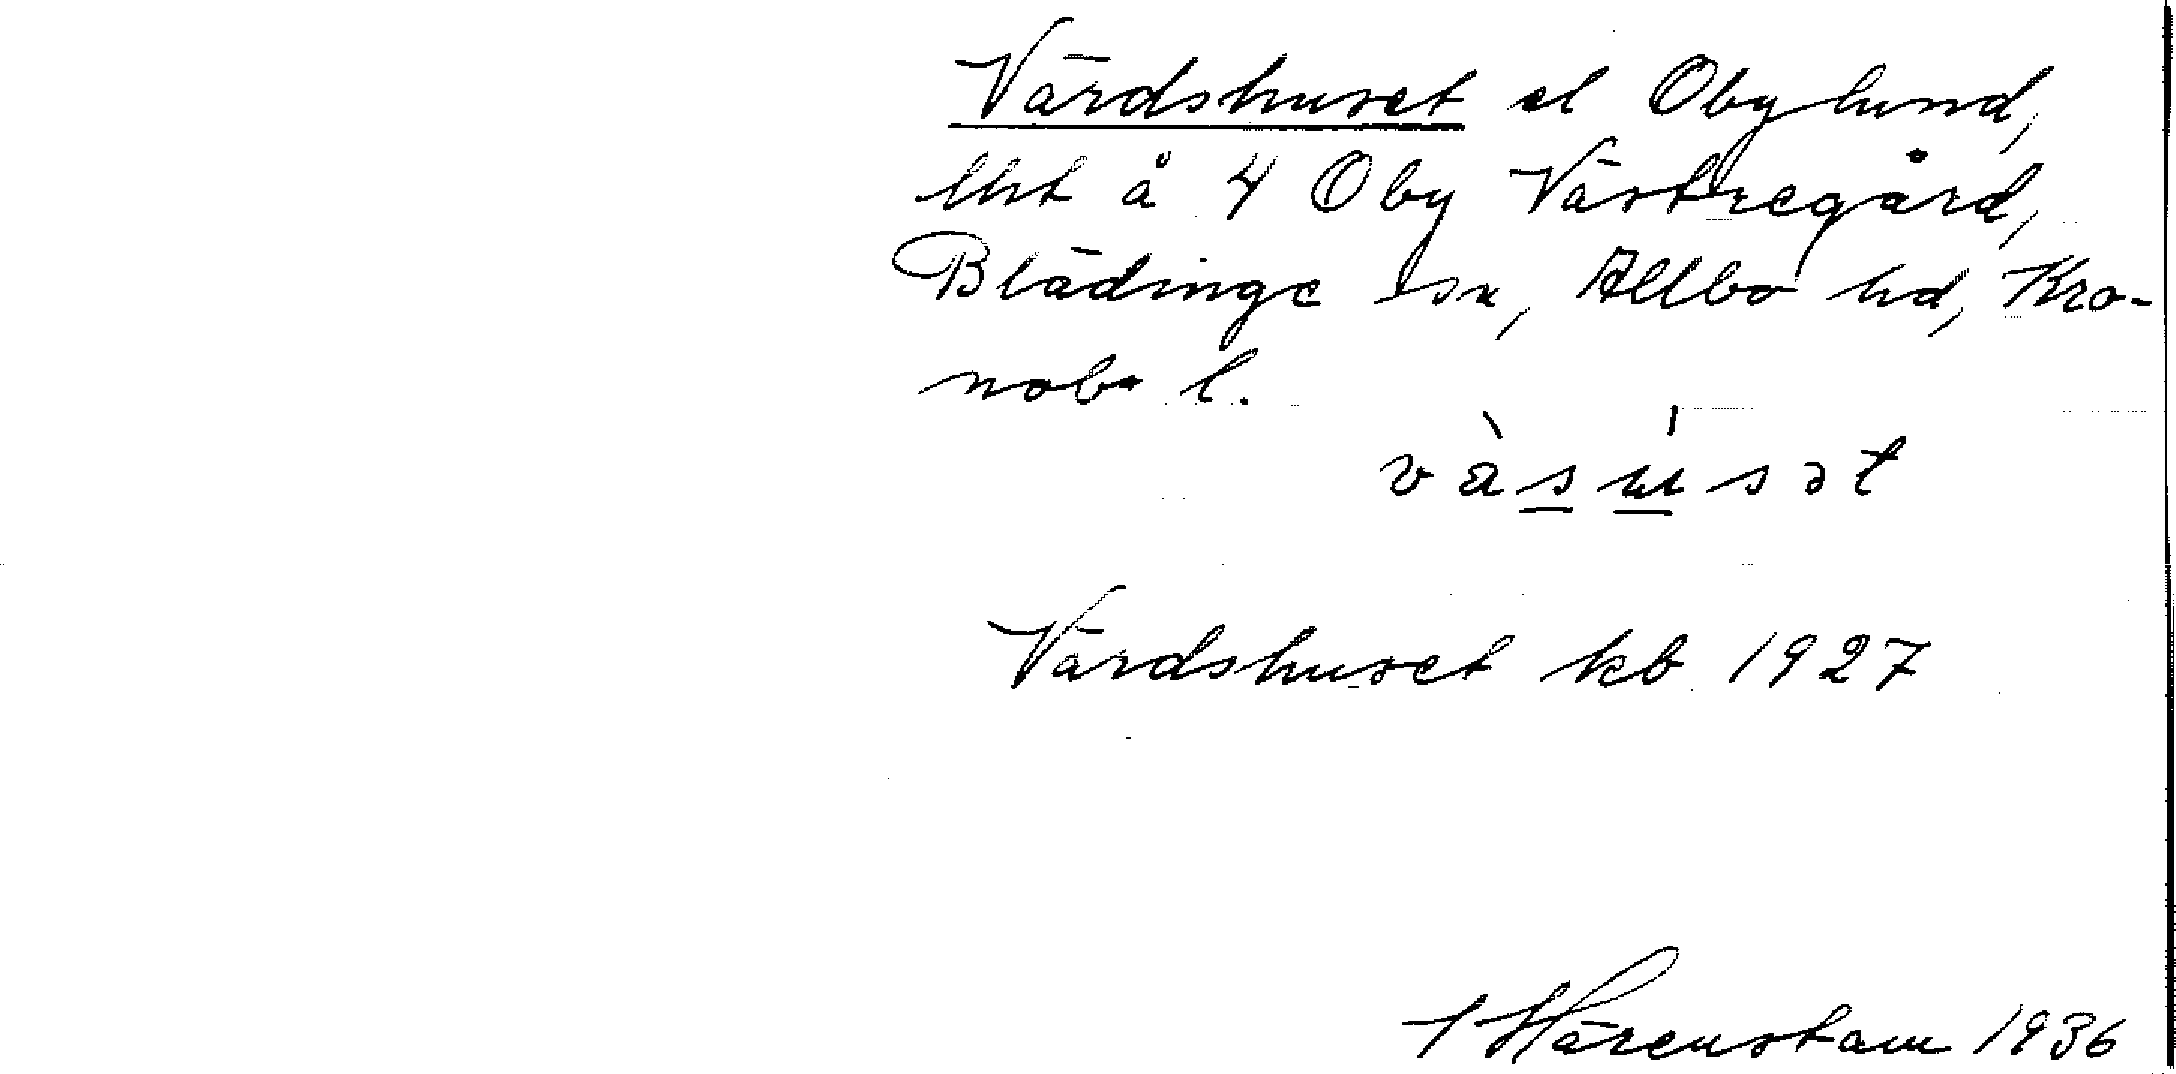 Värdshuset el Obylund,
lht å 4 Oby Västregård,
Blädinge sn, Allbo hd, Kro-
nob. l.
v ä̀ s ú s ə t
Värdshuset kb 1927
Härenstam 1936